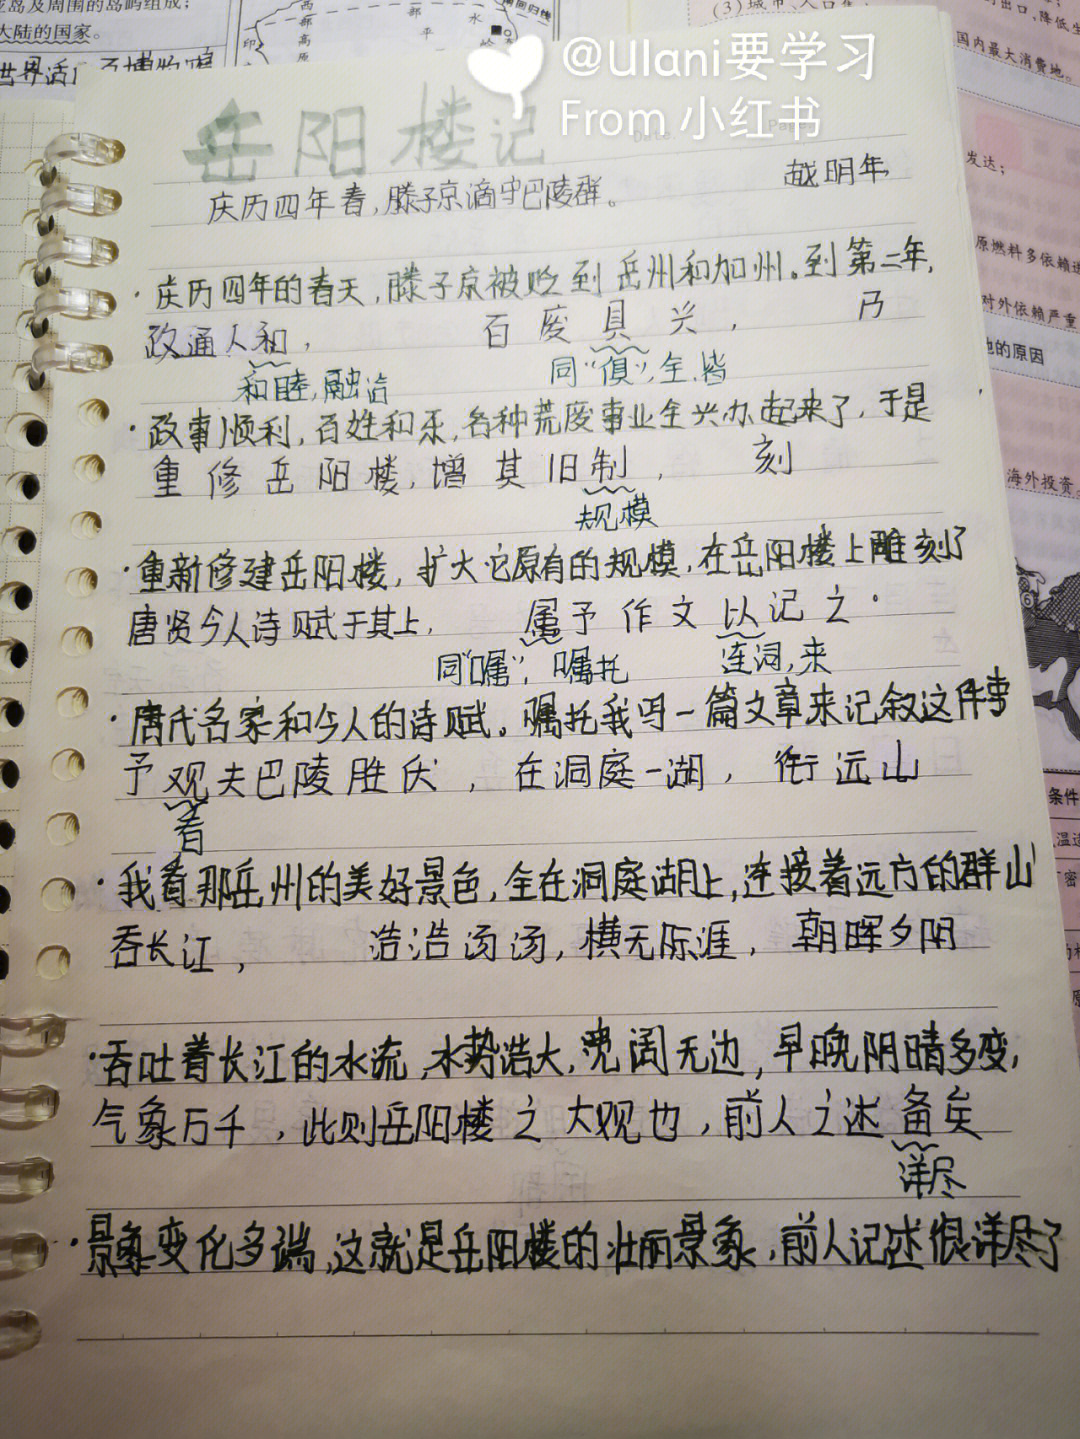 亚岛及周围的岛屿组成;
大陆的国家。
世界活
西
部
高
原
印
部
平
水
南回归线
(3)城市、人口集
出口,降低生
国内最大消费地。
@Ulani要学习
From 小红书
发达;
原燃料多依赖进
对外依赖严重
地的原因
海外投资
条件
岳阳楼记
越明年
庆历四年春,滕子京滴守巴陵群。
·庆历四年的春天,滕子京被贬到岳州和加州。到第二年,
政通人和, 百废具兴, 乃
和睦,融洽 同“俱”,全,皆
·政事顺利,百姓和乐,各种荒废事业全兴办起来了,于是
重修岳阳楼,增其旧制, 刻
规模
·重新修建岳阳楼,扩大它原有的规模,在岳阳楼上雕刻了
唐贤今人诗赋于其上, 属予作文以记之·
同“嘱”,嘱托 连词,来
·唐代名家和今人的诗赋。嘱托我写一篇文章来记叙这件事
予观夫巴陵胜伏,在洞庭一湖,衔远山
看
·我看那岳州的美好景色,全在洞庭湖上,连接着远方的群山
吞长江, 浩浩汤汤,横无际涯,朝晖夕阴
·吞吐着长江的水流,水势浩大,宽阔无边,早晚阴晴多变,
气象万千,此则岳阳楼之大观也,前人之述备矣
详尽
·景象变化多端,这就是岳阳楼的壮丽景象,前人记述很详尽了